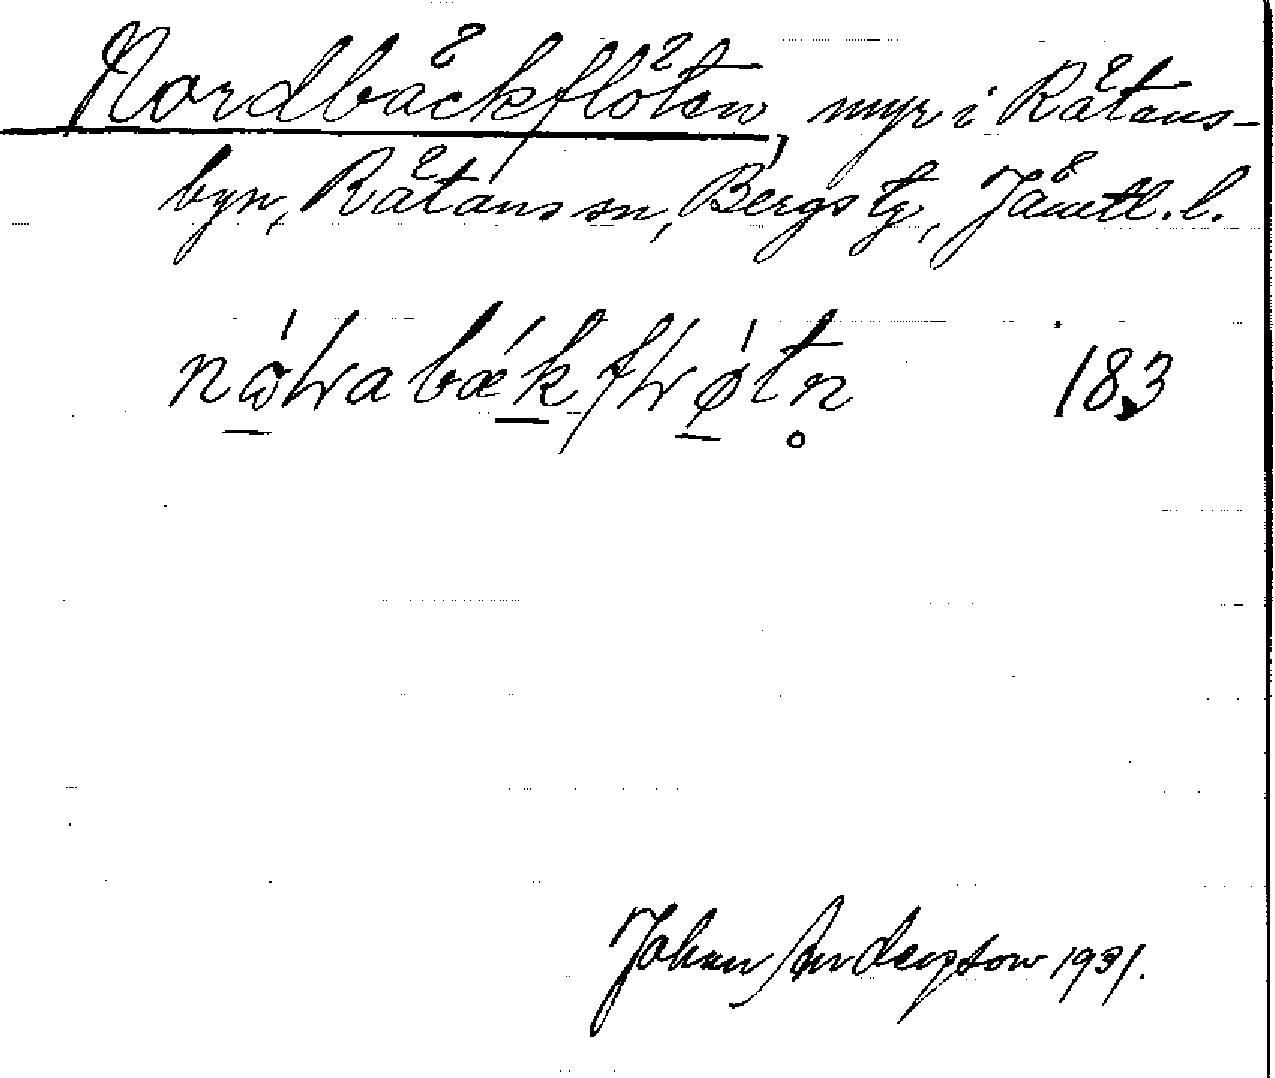 Nordbäckflöten, myr i Rätans-
byn, Rätans sn, Bergs tg, Jämtl. l.
183
Johan Anderson 1931.